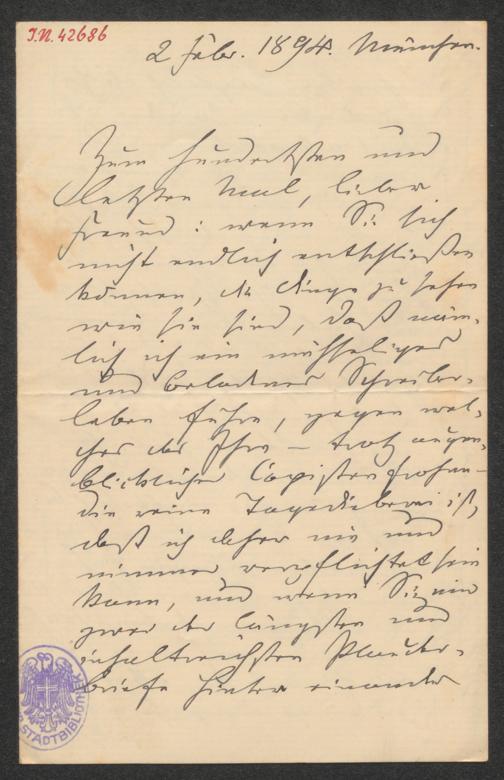 I.N. 42686
2 Febr. 1894. München.
Zum hundertsten und
letzten Mal, lieber
Freund: wenn Sie sich
nicht endlich entschließen
können, die Dinge zu sehen
wie sie sind, daß näm-
lich ich ein mühseliges
und beladenes Schreiber-
leben führe, gegen wel-
ches das Ihre – trotz augen-
blicklicher Copistenfrohn –
die reine Tagedieberei ist,
daß ich daher nie und
nimmer verpflichtet sein
kann, und wenn Sie mir
zwei der längsten und
inhaltreichsten Plauder-
briefe hinter einander
STADTBIBLIOTHEK